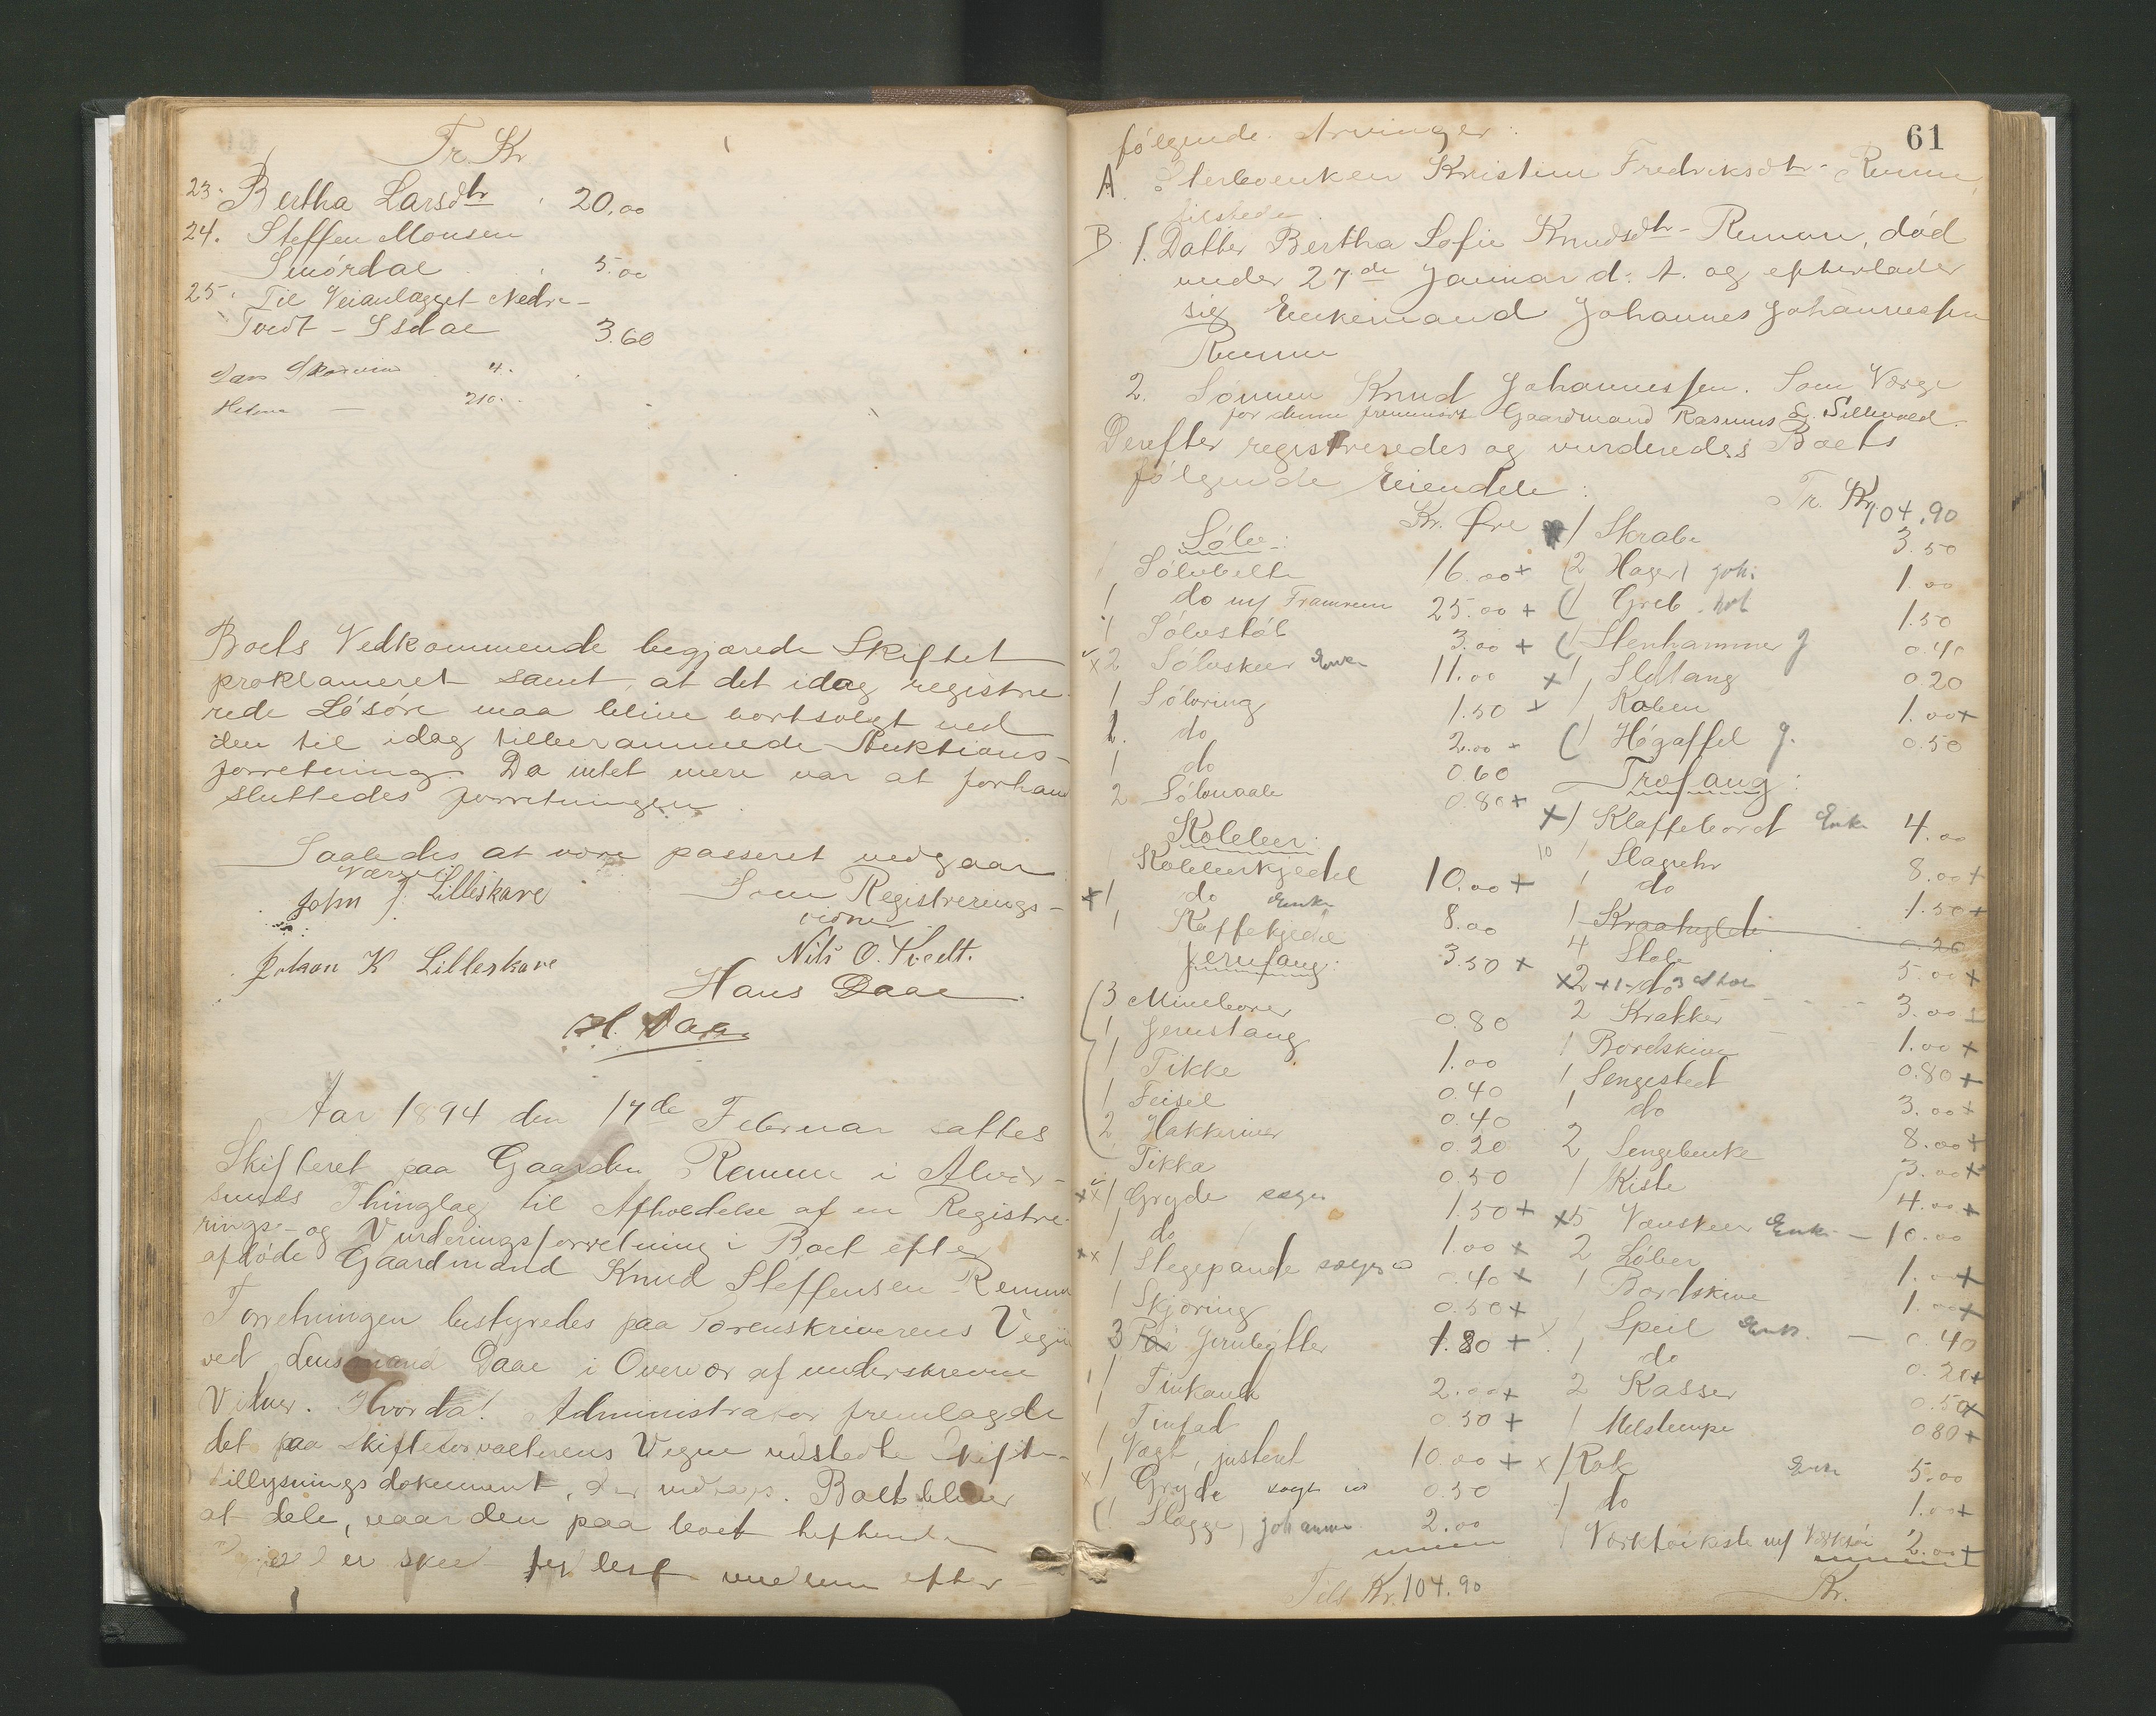 Tr. Kr
23. Bertha Larsdtr 20.00
24. Steffen Monsen
Smørdal 5.00
25. Til Veianlægget Nedre-
Tvedt - Isdal 3.60
Lars 4.
Helena — 210.
Boets Vedkommende begjærede Skiftet
proklameret samt, at det idag registre-
rede Løsøre maa blive bortsolgt ved
den til idag tilberammede Auktions-
forretning. Da intet mere var at forhan
sluttedes forretningen.
Saaledes at være passeret vedgaar
Værge:
John J. Lilleskare
Som Registrerings-
vidner
Johan K Lilleskare
Nils O. Tvedt.
Hans Daae
H. Daae
Aar 1894 den 17de Februar sattes
Skifteret paa Gaarden Remme i Alver-
sunds Thinglag til Afholdelse af en Registre-
rings- og Vurderingsforretning i Boet efter
afdøde Gaardmand Knud Steffensen Remme
Forretningen bestyredes paa Sorenskriverens Vegne
ved Lensmand Daae i Overvær af underskrevne
Vidner. Hvorda! Administrator fremlagde
det paa Skifteforvalterens Vegne udstedte Skifte-
tillysningsdokument, der indtages. Boet bliver
at dele, naar den paa boet heftende
Gjæld er skeet fyldest mellem efter-
61
følgende Arvinger:
A. Sterboenken Kristine Fredriksdtr Remme,
tilstede.
B. 1. Datter Bertha Sofie Knudsdtr - Remme, død
under 27de Januar d. A. og efterlader
sig Enkemand Johannes Johannessen
Remme
2. Sønnen Knud Johannessen. Som Værge
for denne fremmødte Gaardmand Rasmus
Derefter registreredes og vurderedes Boets
følgende Eiendele:
Kr. Øre
Sølv:
1 Sølvbelte 16.00 +
1 do m/ Framrem 25.00 +
1 Sølvstøb 3.00 +
x 2 Sølvskeer Enke 11.00
1 Sølvring 1.50
1. do 2.00 +
1 do 0.60
2 Sølvnaale 0.80 +
Kobber:
1 Kobberkjedel 10.00 +
x 1 do Enke 8.00
1 Kaffekjedel 3.50 +
Jernfang:
3 Mineborer 0.80
1 Jernstang 1.00
1 Pikke 0.40
1 Feisel 0.40
2 Hakkeriver 0.20
Pikke 0.50
xx 1 Gryde 1.50 +
1 do 1.00 x
xx 1 Stegepande 0.40 x
1 Skjøring 0.50 +
3 Par Jernbøtter 1.80 +
1 Tinkande 2.00 +
1 Tinfad 0.50 +
1 Vægt, justeret 10.00 +
x 1 Gryde 0.50
1 Slægge, Johannes 2.00
Tils. Kr. 104.90
Tr. Kr. 104.90
1 Skrabe 3.50
2 Hager Joh. 1.00
1 Greb 1.50
1 Stenhammer J 0.40
x 1 Ildtang 0.20
x 1 Koben 1.00 +
1 Høgaffel J. 0.50
Træfang:
x 1 Klaffebord Enke 4.00
1 Slaguhr 8.00 +
1 do 1.50 +
1 Kraahylde 0.20
4 Stole 5.00 +
x 2 + 1 do 3 Stole 3.00
2 Krakker 1.00 x
1 Bordskive 0.80 +
1 Sengested 3.00 +
1 do 8.00 +
2 Sengebenke 3.00 x
1 Kiste 4.00 +
x 5 Enke — 10.00
2 Løber 1.00 +
1 Bordskive 1.00 x
x 1 Speil Enke — 0.40
1 do 0.20 +
2 Kasser 0.50 x
1 Melstampe 0.80 +
x 1 Rok Enke 5.00
1 do 1.00 +
1 Værktøikiste m/ Værktøi 2.00 +
Kr.